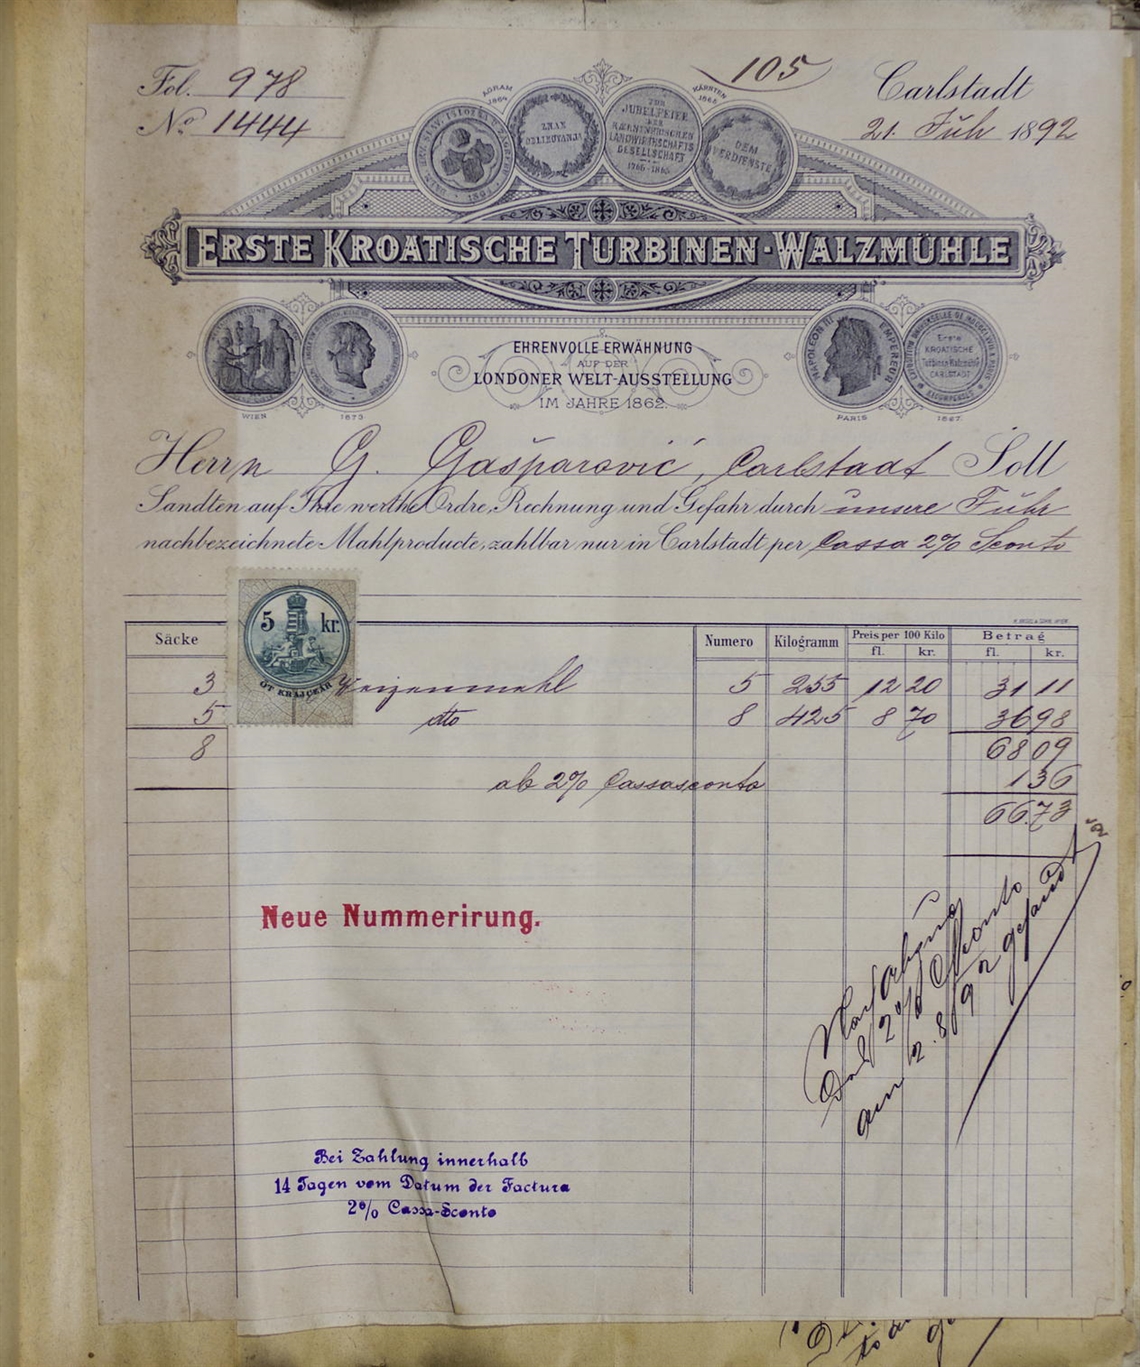 Fol. 978
No 1444
105
Carlstadt
21. 1892
AGRAM 1864
KÄRNTEN 1865
ZNAK ODLIKOVANJA
ZUR JUBELFEIER DER KAERNTNERISCHEN LANDWIRTHSCHAFTS GESELLSCHAFT 1765-1865
DEM VERDIENSTE
ERSTE KROATISCHE TURBINEN-WALZMÜHLE
EHRENVOLLE ERWÄHNUNG
AUF DER
LONDONER WELT-AUSSTELLUNG
IM JAHRE 1862.
WIEN 1873
NAPOLEON III EMPEREUR
Erste KROATISCHE Turbinen Walzmühle CARLSTADT
PARIS 1867
Herrn G. Gašparović, Carlstadt Soll
Sandten auf Ihre werthe Ordre, Rechnung und Gefahr durch unsere Fuhr
nachbezeichnete Mahlproducte, zahlbar nur in Carlstadt per Cassa 2% Sconto
5 kr.
ÖT KRAJCZÁR
Säcke Numero Kilogramm Preis per 100 Kilo Betrag
fl. kr. fl. kr.
3 Weizenmehl 5 255 12 20 31 11
5 dto 8 425 8 70 36 98
8 68 09
ab 2% Cassasconto 1 36
66.73
Neue Nummerirung.
2% Sconto
am 2.8/92 gesandt
Bei Zahlung innerhalb
14 Tagen vom Datum der Factura
2% Cassa-Sconto